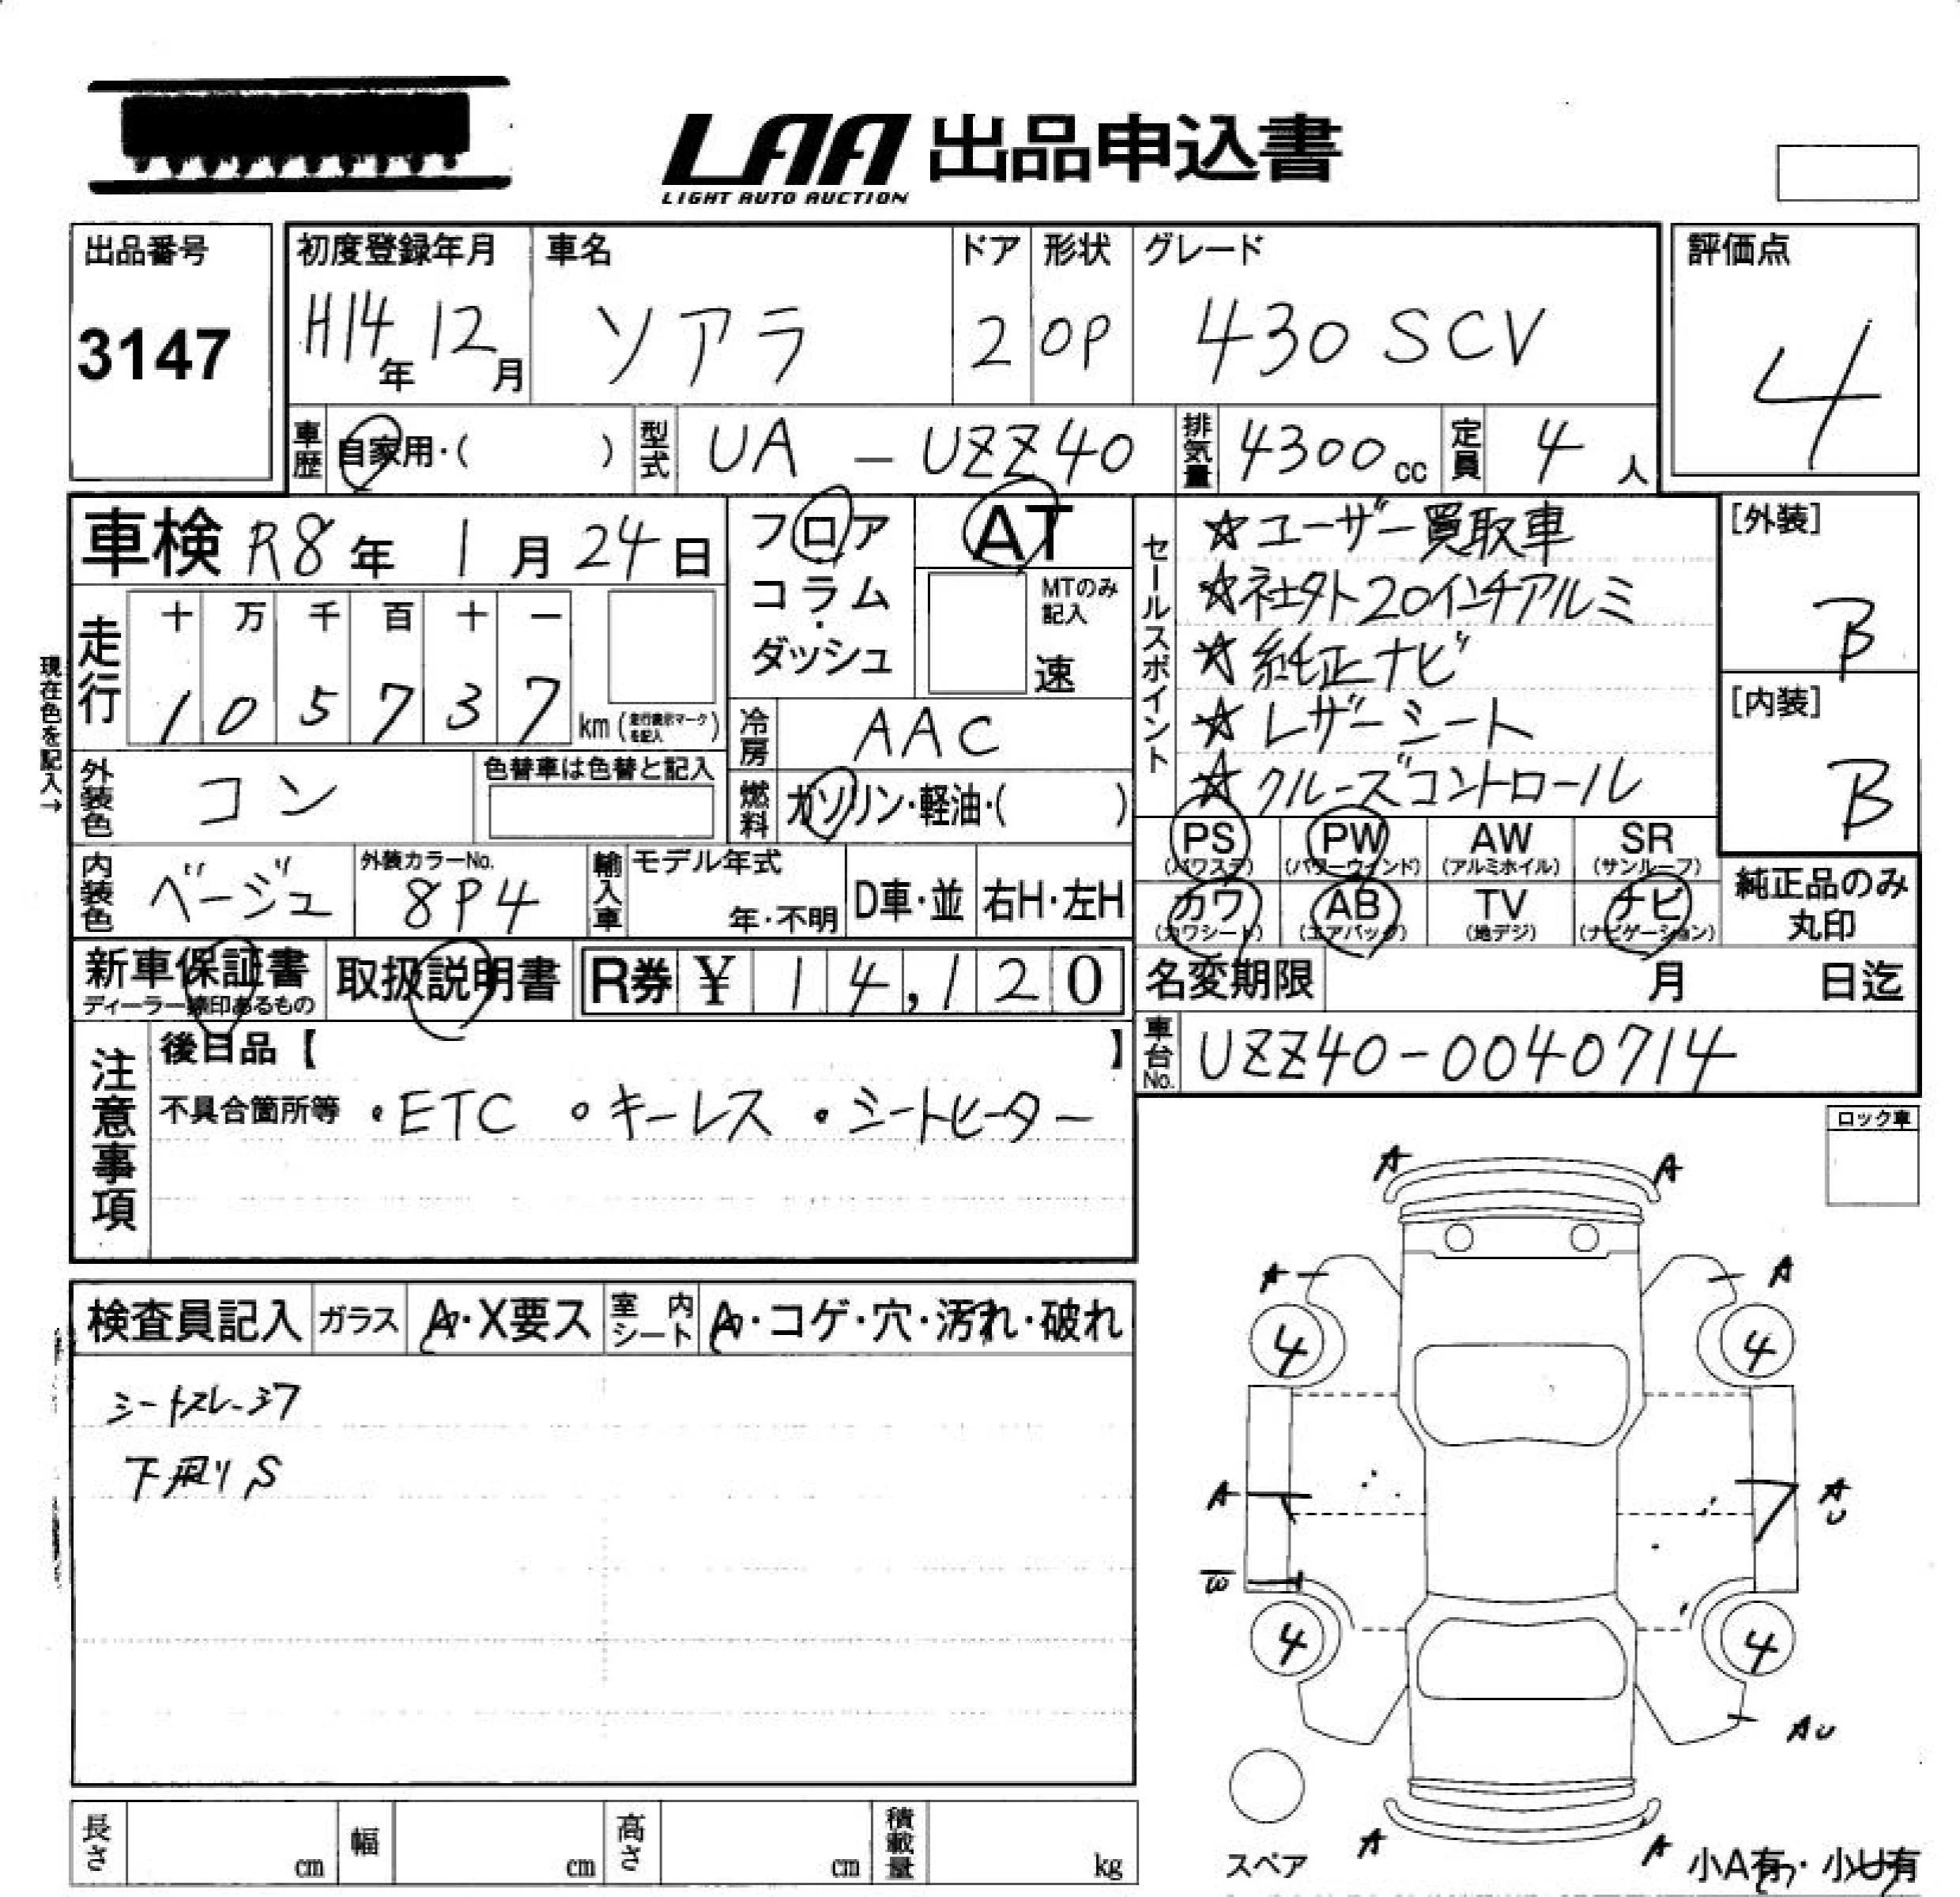 LAA 出品申込書
LIGHT AUTO AUCTION
出品番号
3147
初度登録年月
H14年 12月
車名
ソアラ
ドア
2
形状
OP
グレード
430 SCV
評価点
4
車歴 自家用・( )
型式 UA - UZZ40
排気量 4300cc
定員 4人
車検 R8年 1月 24日
フロア
コラム・
ダッシュ
AT
MTのみ記入
速
現在色を記入→
走行
十 万 千 百 十 一
1 0 5 7 3 7 km (走行表示マークを記入)
冷房 AAC
外装色 コン
色替車は色替と記入
燃料 ガソリン・軽油・( )
内装色 ベージュ
外装カラーNo.
8P4
輸入車 モデル年式
年・不明
D車・並
右H・左H
セールスポイント
☆ユーザー買取車
☆社外20インチアルミ
☆純正ナビ
☆レザーシート
☆クルーズコントロール
[外装]
B
[内装]
B
PS (パワステ)
PW (パワーウィンド)
AW (アルミホイル)
SR (サンルーフ)
カワ (カワシート)
AB (エアバッグ)
TV (地デジ)
ナビ (ナビゲーション)
純正品のみ
丸印
新車保証書
ディーラー捺印あるもの
取扱説明書
R券 ¥ 14,120
名変期限 月 日迄
車台No. UZZ40-0040714
注意事項
後日品【 】
不具合箇所等 ・ETC ・キーレス ・シートヒーター
ロック車
検査員記入
ガラス A・X要ス
室内シート A・コゲ・穴・汚れ・破れ
シートスレ・シワ
下廻りS
A A
A A
4 4
A A
U
W
4 4
AU
A A
スペア
小A有・小U有
長さ cm
幅 cm
高さ cm
積載量 kg